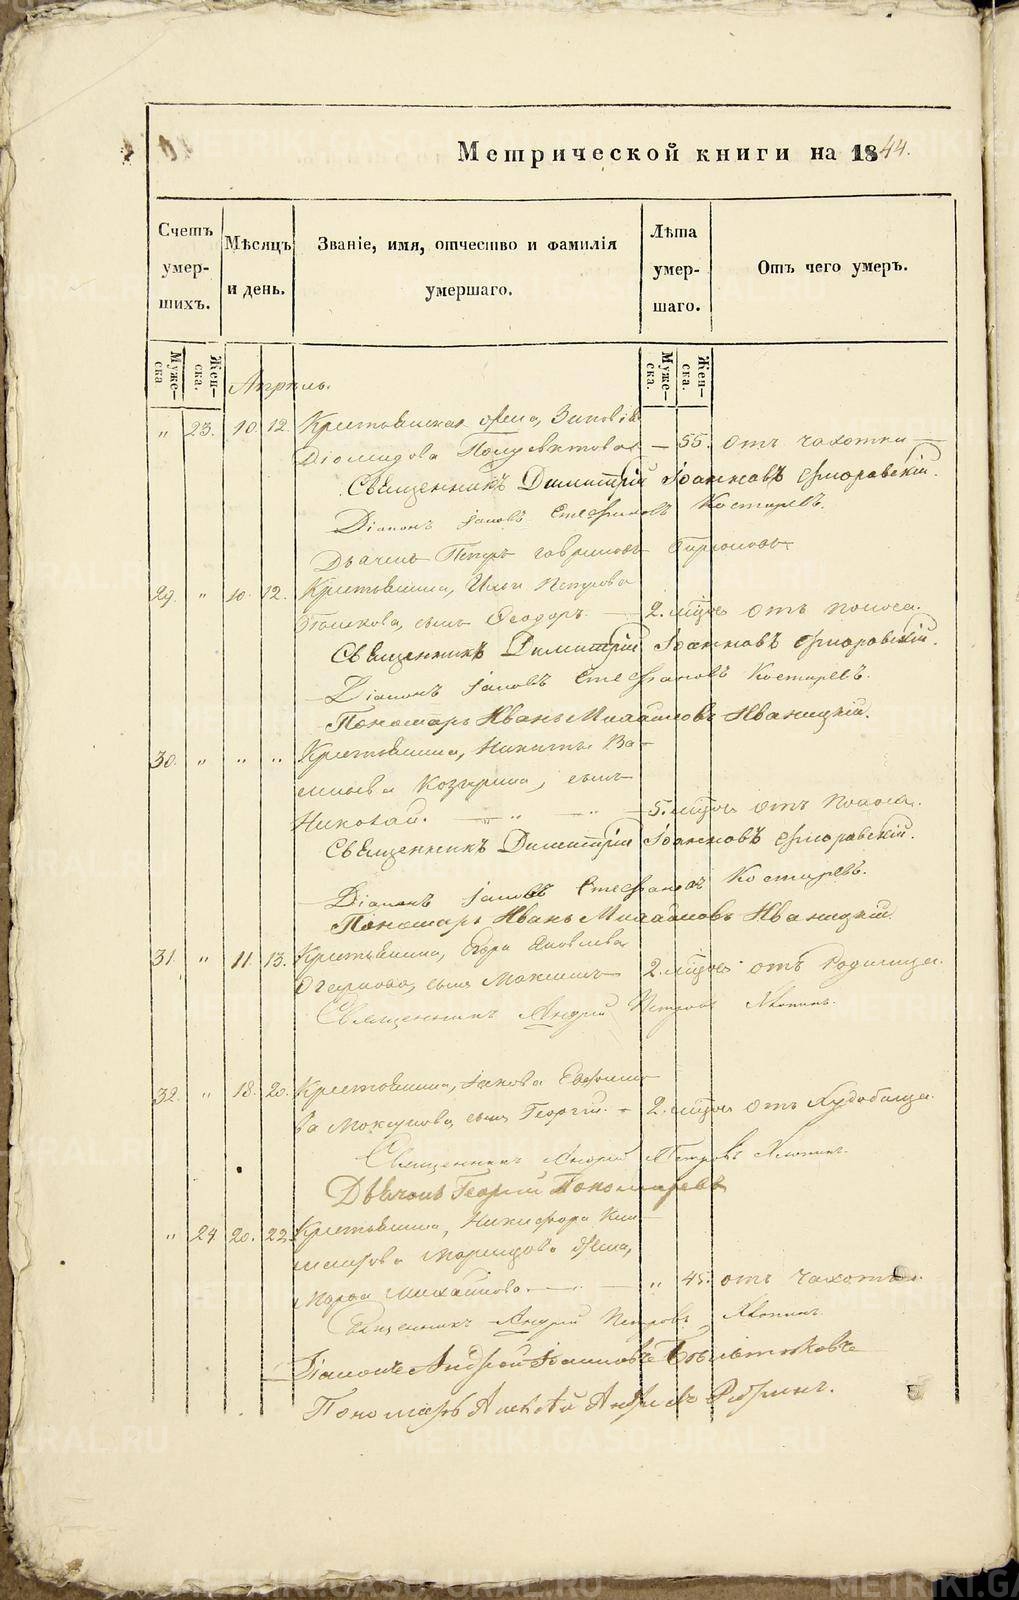 Метрической книги на 1844.
Счетъ умершихъ.
Мѣсяцъ и день.
Званіе, имя, отчество и фамилія умершаго.
Лѣта умершаго.
Отъ чего умеръ.
Мужеска
Женска.
Мужеска.
Женска.
Апрѣль.
" 23. 10. 12. Крестьянская жена, Зиновія
Діомидова Полуектова — 55. отъ чахотки —
Священникъ Димитрій Іоанновъ Флоровскій.
Діаконъ Іаковъ Стефановъ Костыревъ.
Дьячекъ Петръ Гавриловъ
29. " 10. 12. Крестьянина, Ильи Петрова
сынъ Ѳеодоръ. — 2. мѣсяц отъ поноса.
Священникъ Димитрій Іоанновъ Флоровскій.
Діаконъ Іаковъ Стефановъ Костыревъ.
Пономарь Иванъ Михайловъ Иваницкій.
30. " " " Крестьянина, Никиты Ва-
сильева Козырина, сынъ
Николай. — " — " — 5. мѣсяц отъ поноса.
Священникъ Димитрій Іоанновъ Флоровскій.
Діаконъ Іаковъ Стефановъ Костыревъ.
Пономарь Иванъ Михайловъ Иваницкій.
31 " 11 13. Крестьянина, Егора Яковлева
сынъ Максимъ 2. мѣсяц отъ родимца.
Священникъ Андрей Петровъ Хлопинъ.
32. " 18. 20. Крестьянина, Іакова Ефимо-
ва сынъ Георгій. — 2. мѣсяц отъ худобища.
Священникъ Андрей Петровъ Хлопинъ.
Дьячокъ Георгій Пономаревъ
" 24 20. 22. Крестьянина, Никифора
жена,
Марѳа Михайлова. — " 45. отъ чахотки.
Священникъ Андрей Петровъ Хлопинъ.
Діаконъ Андрей Іоанновъ
Пономарь Алексѣй Андреевъ
METRIKI.GASO-URAL.RU